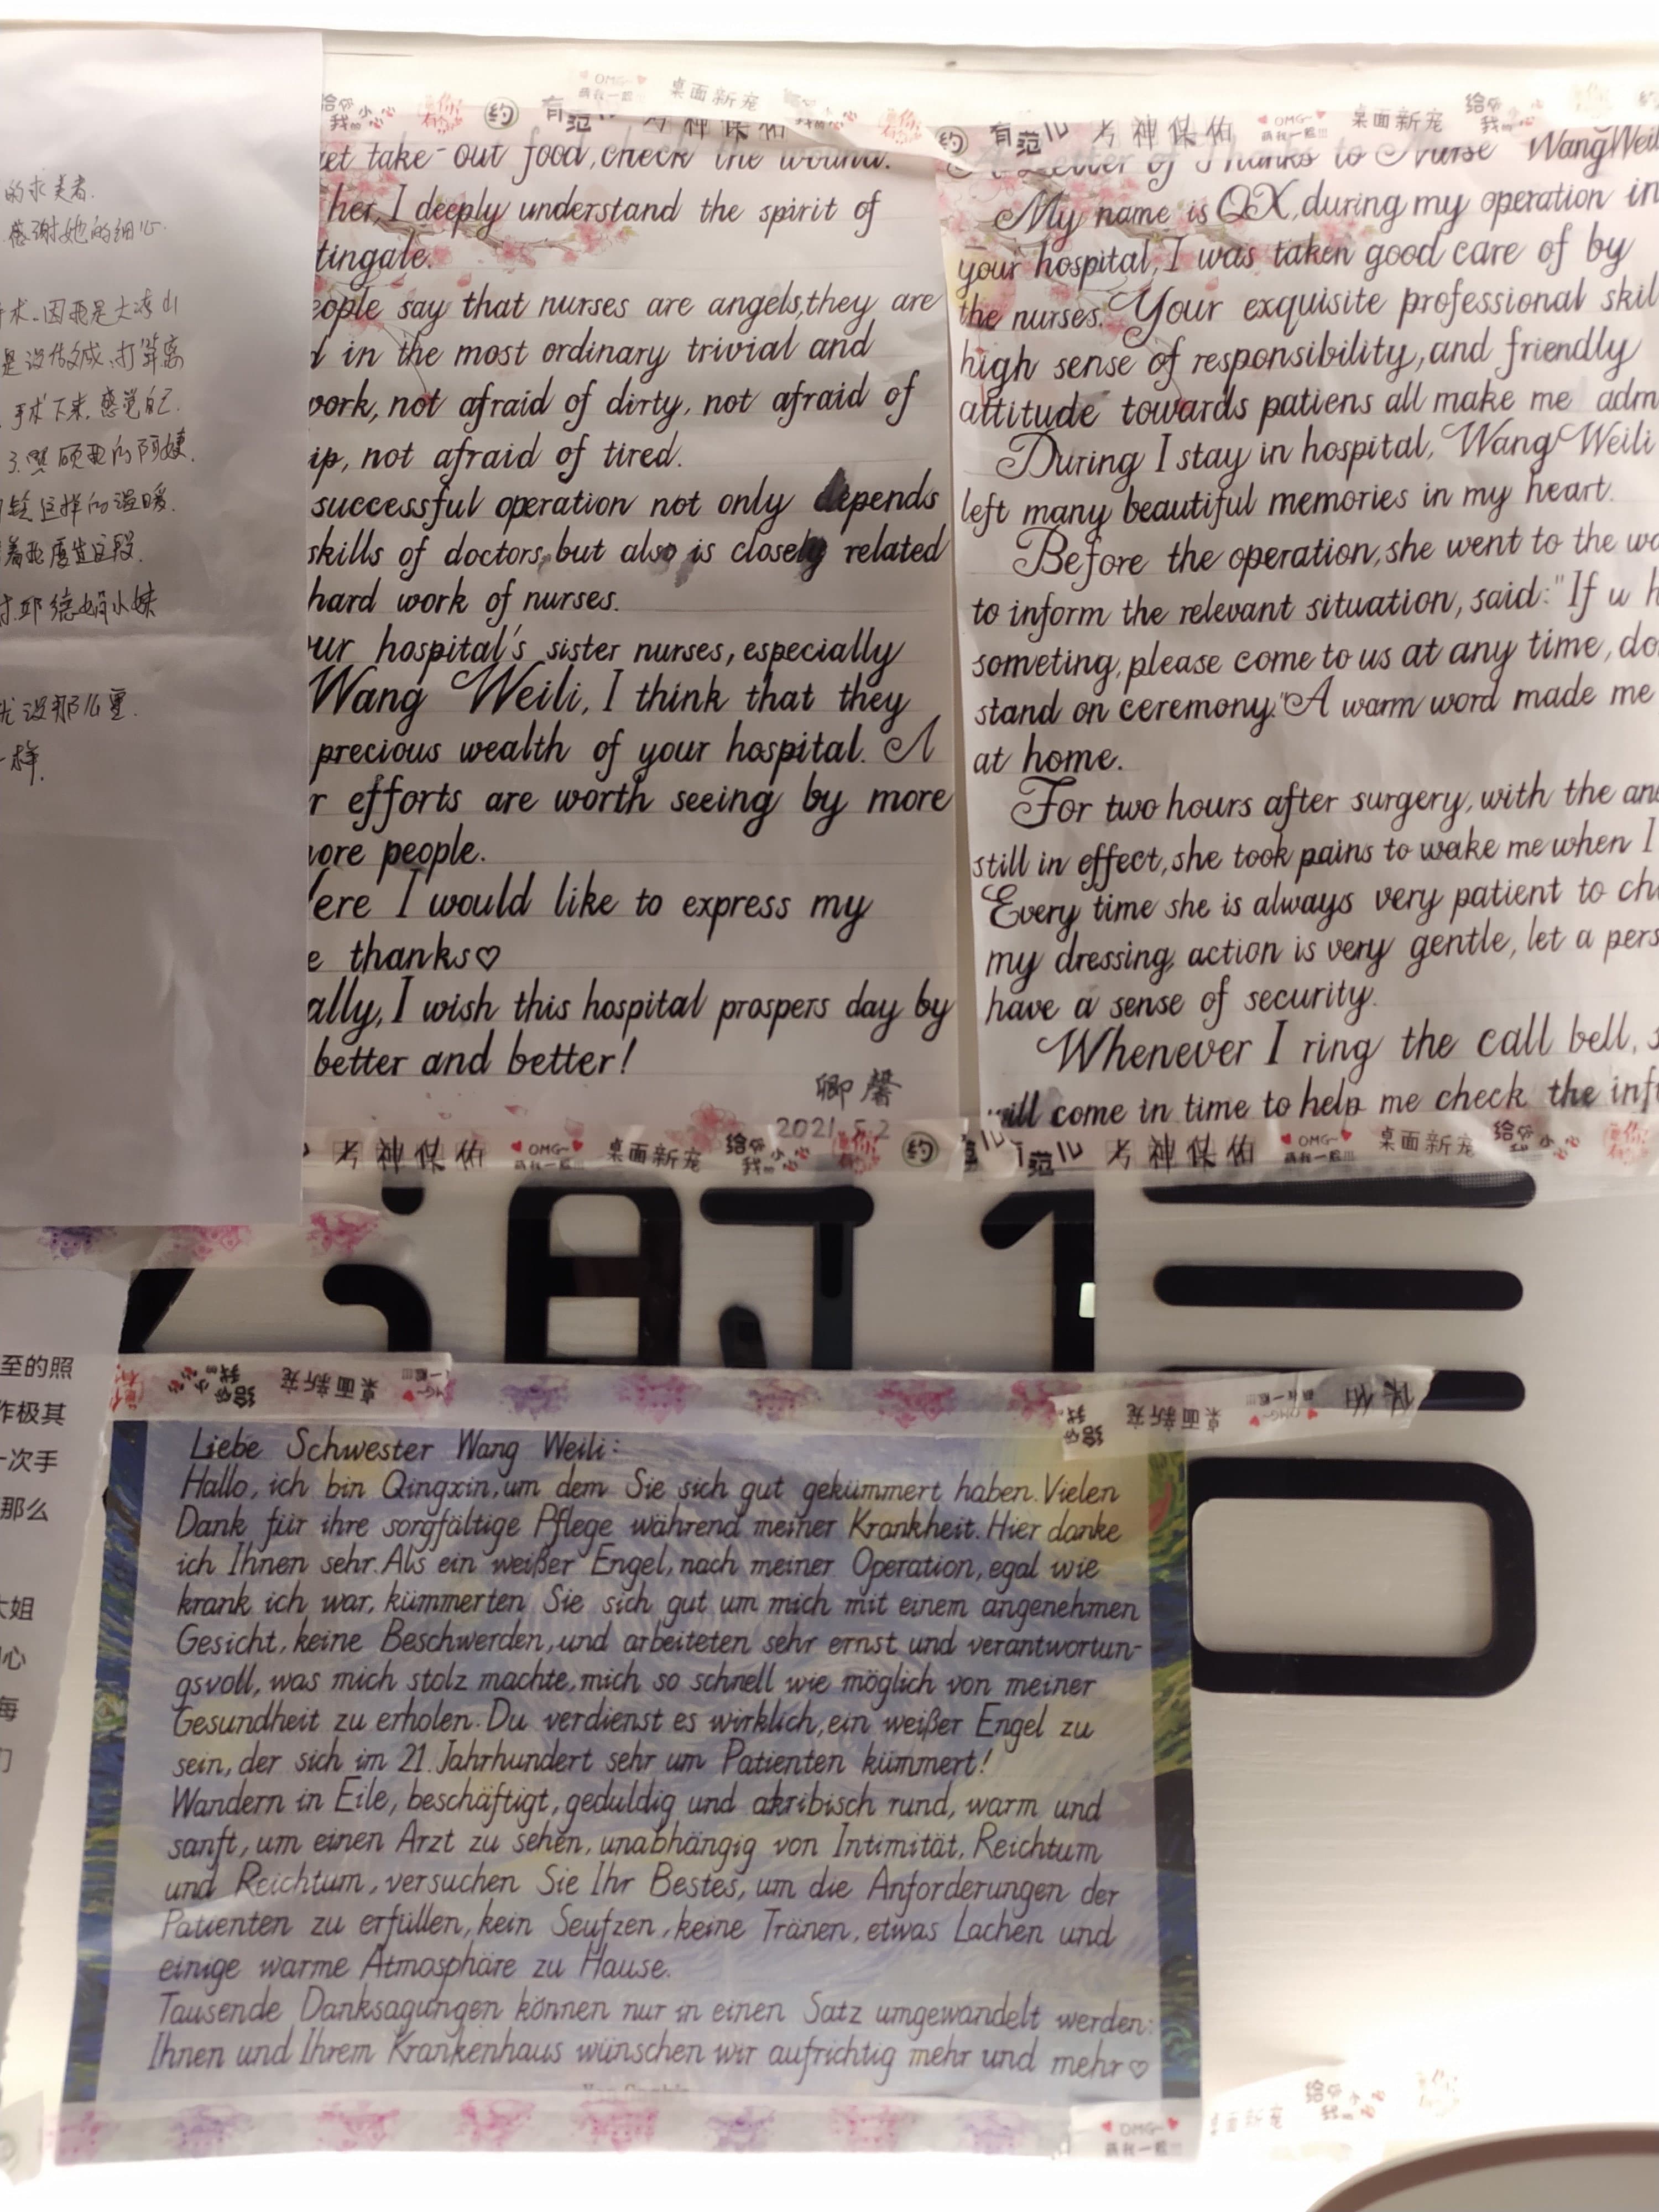 的求美者.
感谢她的细心
术.因我是大凉山
手术下来.感觉自己
小妹
我没那么重.
一样.
take-out food, check the wound.
her, I deeply understand the spirit of
tingale.
eople say that nurses are angels,they are
in the most ordinary trivial and
work, not afraid of dirty, not afraid of
ip, not afraid of tired.
successful operation not only depends
skills of doctors, but also is closely related
hard work of nurses.
ur hospital's sister nurses, especially
Wang Weili, I think that they
precious wealth of your hospital. A
r efforts are worth seeing by more
more people.
ere I would like to express my
e thanks♡
ally, I wish this hospital prospers day by
better and better!
卿馨
2021.5.2
A Letter of Thanks to Nurse WangWeil
My name is QX, during my operation in
your hospital, I was taken good care of by
the nurses. Your exquisite professional skil
high sense of responsibility, and friendly
attitude towards patiens all make me adm
During I stay in hospital, Wang Weili
left many beautiful memories in my heart.
Before the operation, she went to the wa
to inform the relevant situation, said: "If u h
someting, please come to us at any time, do
stand on ceremony." A warm word made me
at home.
For two hours after surgery, with the an
still in effect, she took pains to wake me when I
Every time she is always very patient to ch
my dressing, action is very gentle, let a pers
have a sense of security.
Whenever I ring the call bell, s
will come in time to help me check the inf
至的照
作极其
一次手
那么
大姐
心
每
Liebe Schwester Wang Weili:
Hallo, ich bin Qingxin, um dem Sie sich gut gekümmert haben. Vielen
Dank für ihre sorgfältige Pflege während meiner Krankheit. Hier danke
ich Ihnen sehr. Als ein weißer Engel, nach meiner Operation, egal wie
krank ich war, kümmerten Sie sich gut um mich mit einem angenehmen
Gesicht, keine Beschwerden, und arbeiteten sehr ernst und verantwortun-
gsvoll, was mich stolz machte, mich so schnell wie möglich von meiner
Gesundheit zu erholen. Du verdienst es wirklich, ein weißer Engel zu
sein, der sich im 21. Jahrhundert sehr um Patienten kümmert!
Wandern in Eile, beschäftigt, geduldig und akribisch rund, warm und
sanft, um einen Arzt zu sehen, unabhängig von Intimität, Reichtum
und Reichtum, versuchen Sie Ihr Bestes, um die Anforderungen der
Patienten zu erfüllen, kein Seufzen, keine Tränen, etwas Lachen und
einige warme Atmosphäre zu Hause.
Tausende Danksagungen können nur in einen Satz umgewandelt werden:
Ihnen und Ihrem Krankenhaus wünschen wir aufrichtig mehr und mehr♡